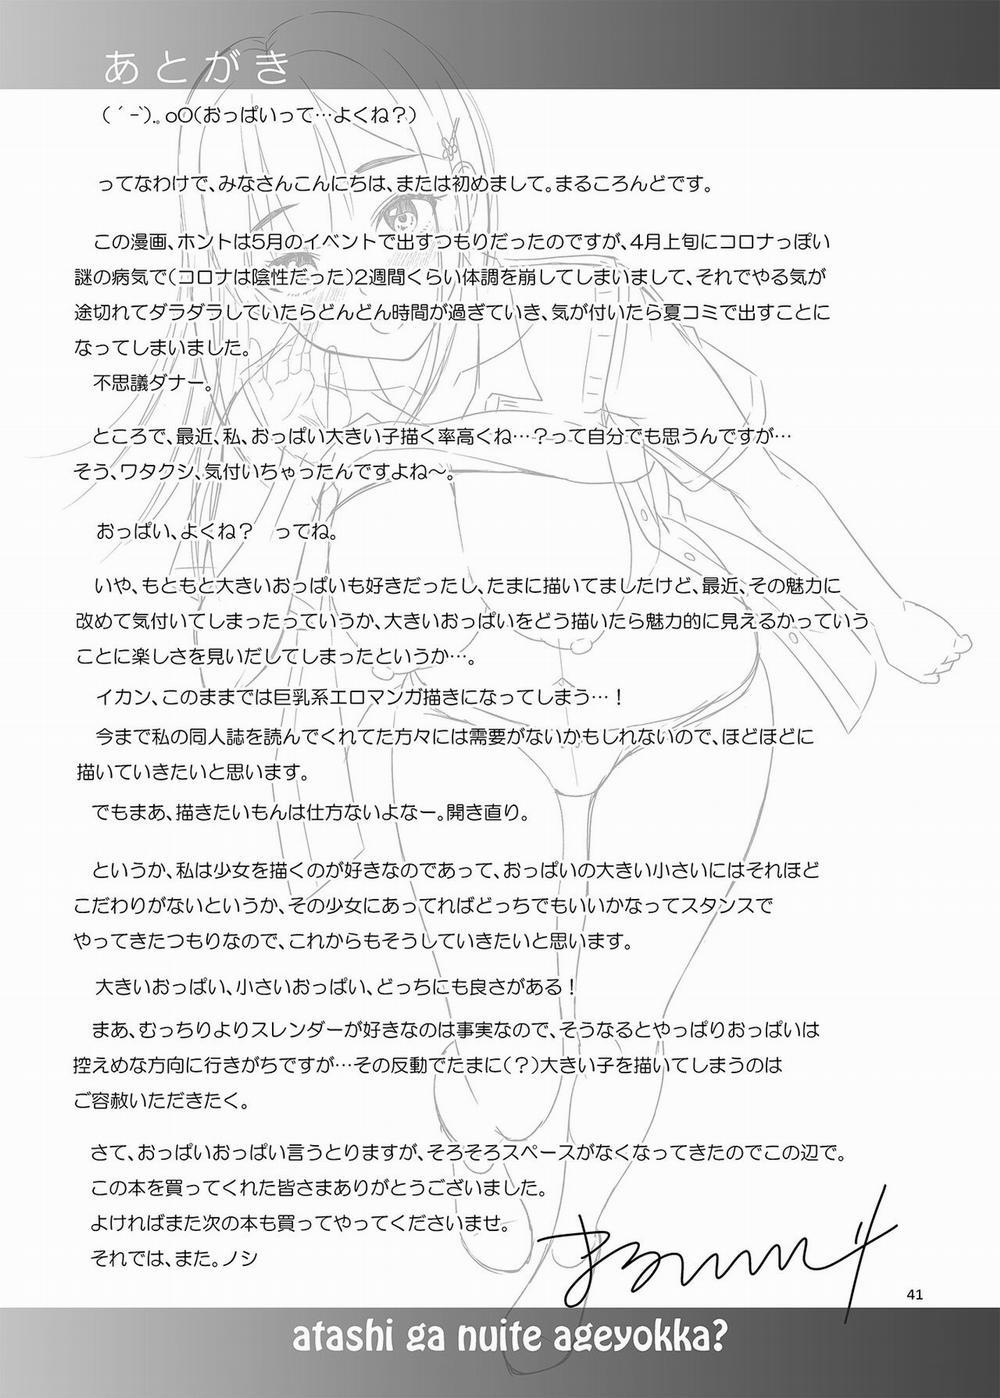 あとがき
(´-`).｡oO(おっぱいって…よくね？)
ってなわけで、みなさんこんにちは、または初めまして。まるころんどです。
この漫画、ホントは5月のイベントで出すつもりだったのですが、4月上旬にコロナっぽい
謎の病気で(コロナは陰性だった)2週間くらい体調を崩してしまいまして、それでやる気が
途切れてダラダラしていたらどんどん時間が過ぎていき、気が付いたら夏コミで出すことに
なってしまいました。
不思議ダナー。
ところで、最近、私、おっぱい大きい子描く率高くね…？って自分でも思うんですが…
そう、ワタクシ、気付いちゃったんですよね〜。
おっぱい、よくね？　ってね。
いや、もともと大きいおっぱいも好きだったし、たまに描いてましたけど、最近、その魅力に
改めて気付いてしまったっていうか、大きいおっぱいをどう描いたら魅力的に見えるかっていう
ことに楽しさを見いだしてしまったというか…。
イカン、このままでは巨乳系エロマンガ描きになってしまう…！
今まで私の同人誌を読んでくれてた方々には需要がないかもしれないので、ほどほどに
描いていきたいと思います。
でもまあ、描きたいもんは仕方ないよなー。開き直り。
というか、私は少女を描くのが好きなのであって、おっぱいの大きい小さいにはそれほど
こだわりがないというか、その少女にあってればどっちでもいいかなってスタンスで
やってきたつもりなので、これからもそうしていきたいと思います。
大きいおっぱい、小さいおっぱい、どっちにも良さがある！
まあ、むっちりよりスレンダーが好きなのは事実なので、そうなるとやっぱりおっぱいは
控えめな方向に行きがちですが…その反動でたまに(？)大きい子を描いてしまうのは
ご容赦いただきたく。
さて、おっぱいおっぱい言うとりますが、そろそろスペースがなくなってきたのでこの辺で。
この本を買ってくれた皆さまありがとうございました。
よければまた次の本も買ってやってくださいませ。
それでは、また。ノシ
41
atashi ga nuite ageyokka?